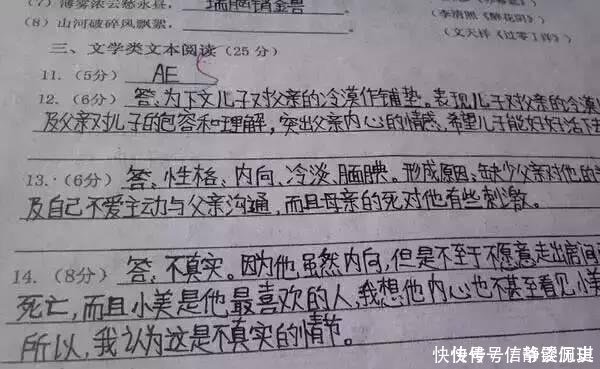 (7) 薄雾浓云愁永昼，瑞脑销金兽 (李清照《醉花阴》)
(8) 山河破碎风飘絮， (文天祥《过零丁洋》)
三、文学类文本阅读 (25 分)
11. (5分) AE
12. (6分) 答：为下文儿子对父亲的冷漠作铺垫。表现儿子对父亲的冷漠
及父亲对儿子的包容和理解，突出父亲内心的情感，希望儿子能好好活下去
13. (6分) 答：性格、内向、冷淡、腼腆。形成原因：缺少父亲对他的
及自己不爱主动与父亲沟通，而且母亲的死对他有些刺激。
14. (8分) 答：不真实。因为他虽然内向，但是不至于不愿意走出房间
死亡，而且小美是他最喜欢的人，我想他内心也不甚至看见小美
所以，我认为这是不真实的情节。
快传号